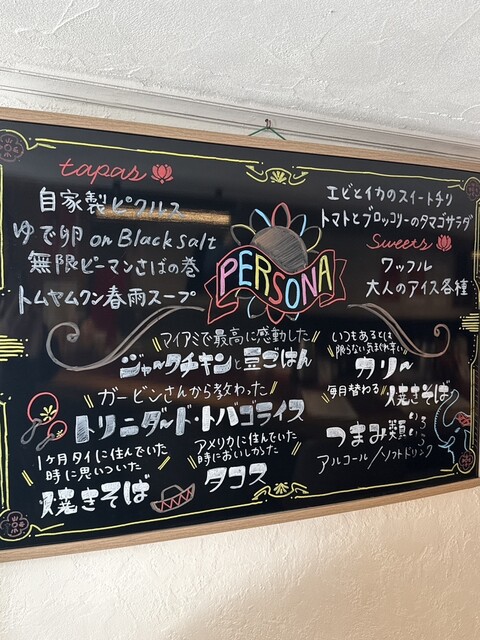 tapas
自家製ピクルス
ゆで卵 on Black salt
無限ピーマンさばの巻
トムヤムクン春雨スープ
PERSONA
エビとイカのスイートチリ
トマトとブロッコリーのタマゴサラダ
Sweets
ワッフル
大人のアイス各種
マイアミで最高に感動した
ジャークチキンと豆ごはん
ガービンさんから教わった
トリニダード・トバゴライス
1ヶ月タイに住んでいた
時に思いついた
焼きそば
アメリカに住んでいた
時においしかった
タコス
いつもあるとは
限らない気まぐれ辛い
カリー
毎月替わる 焼きそば
つまみ類いろいろ
アルコール/ソフトドリンク